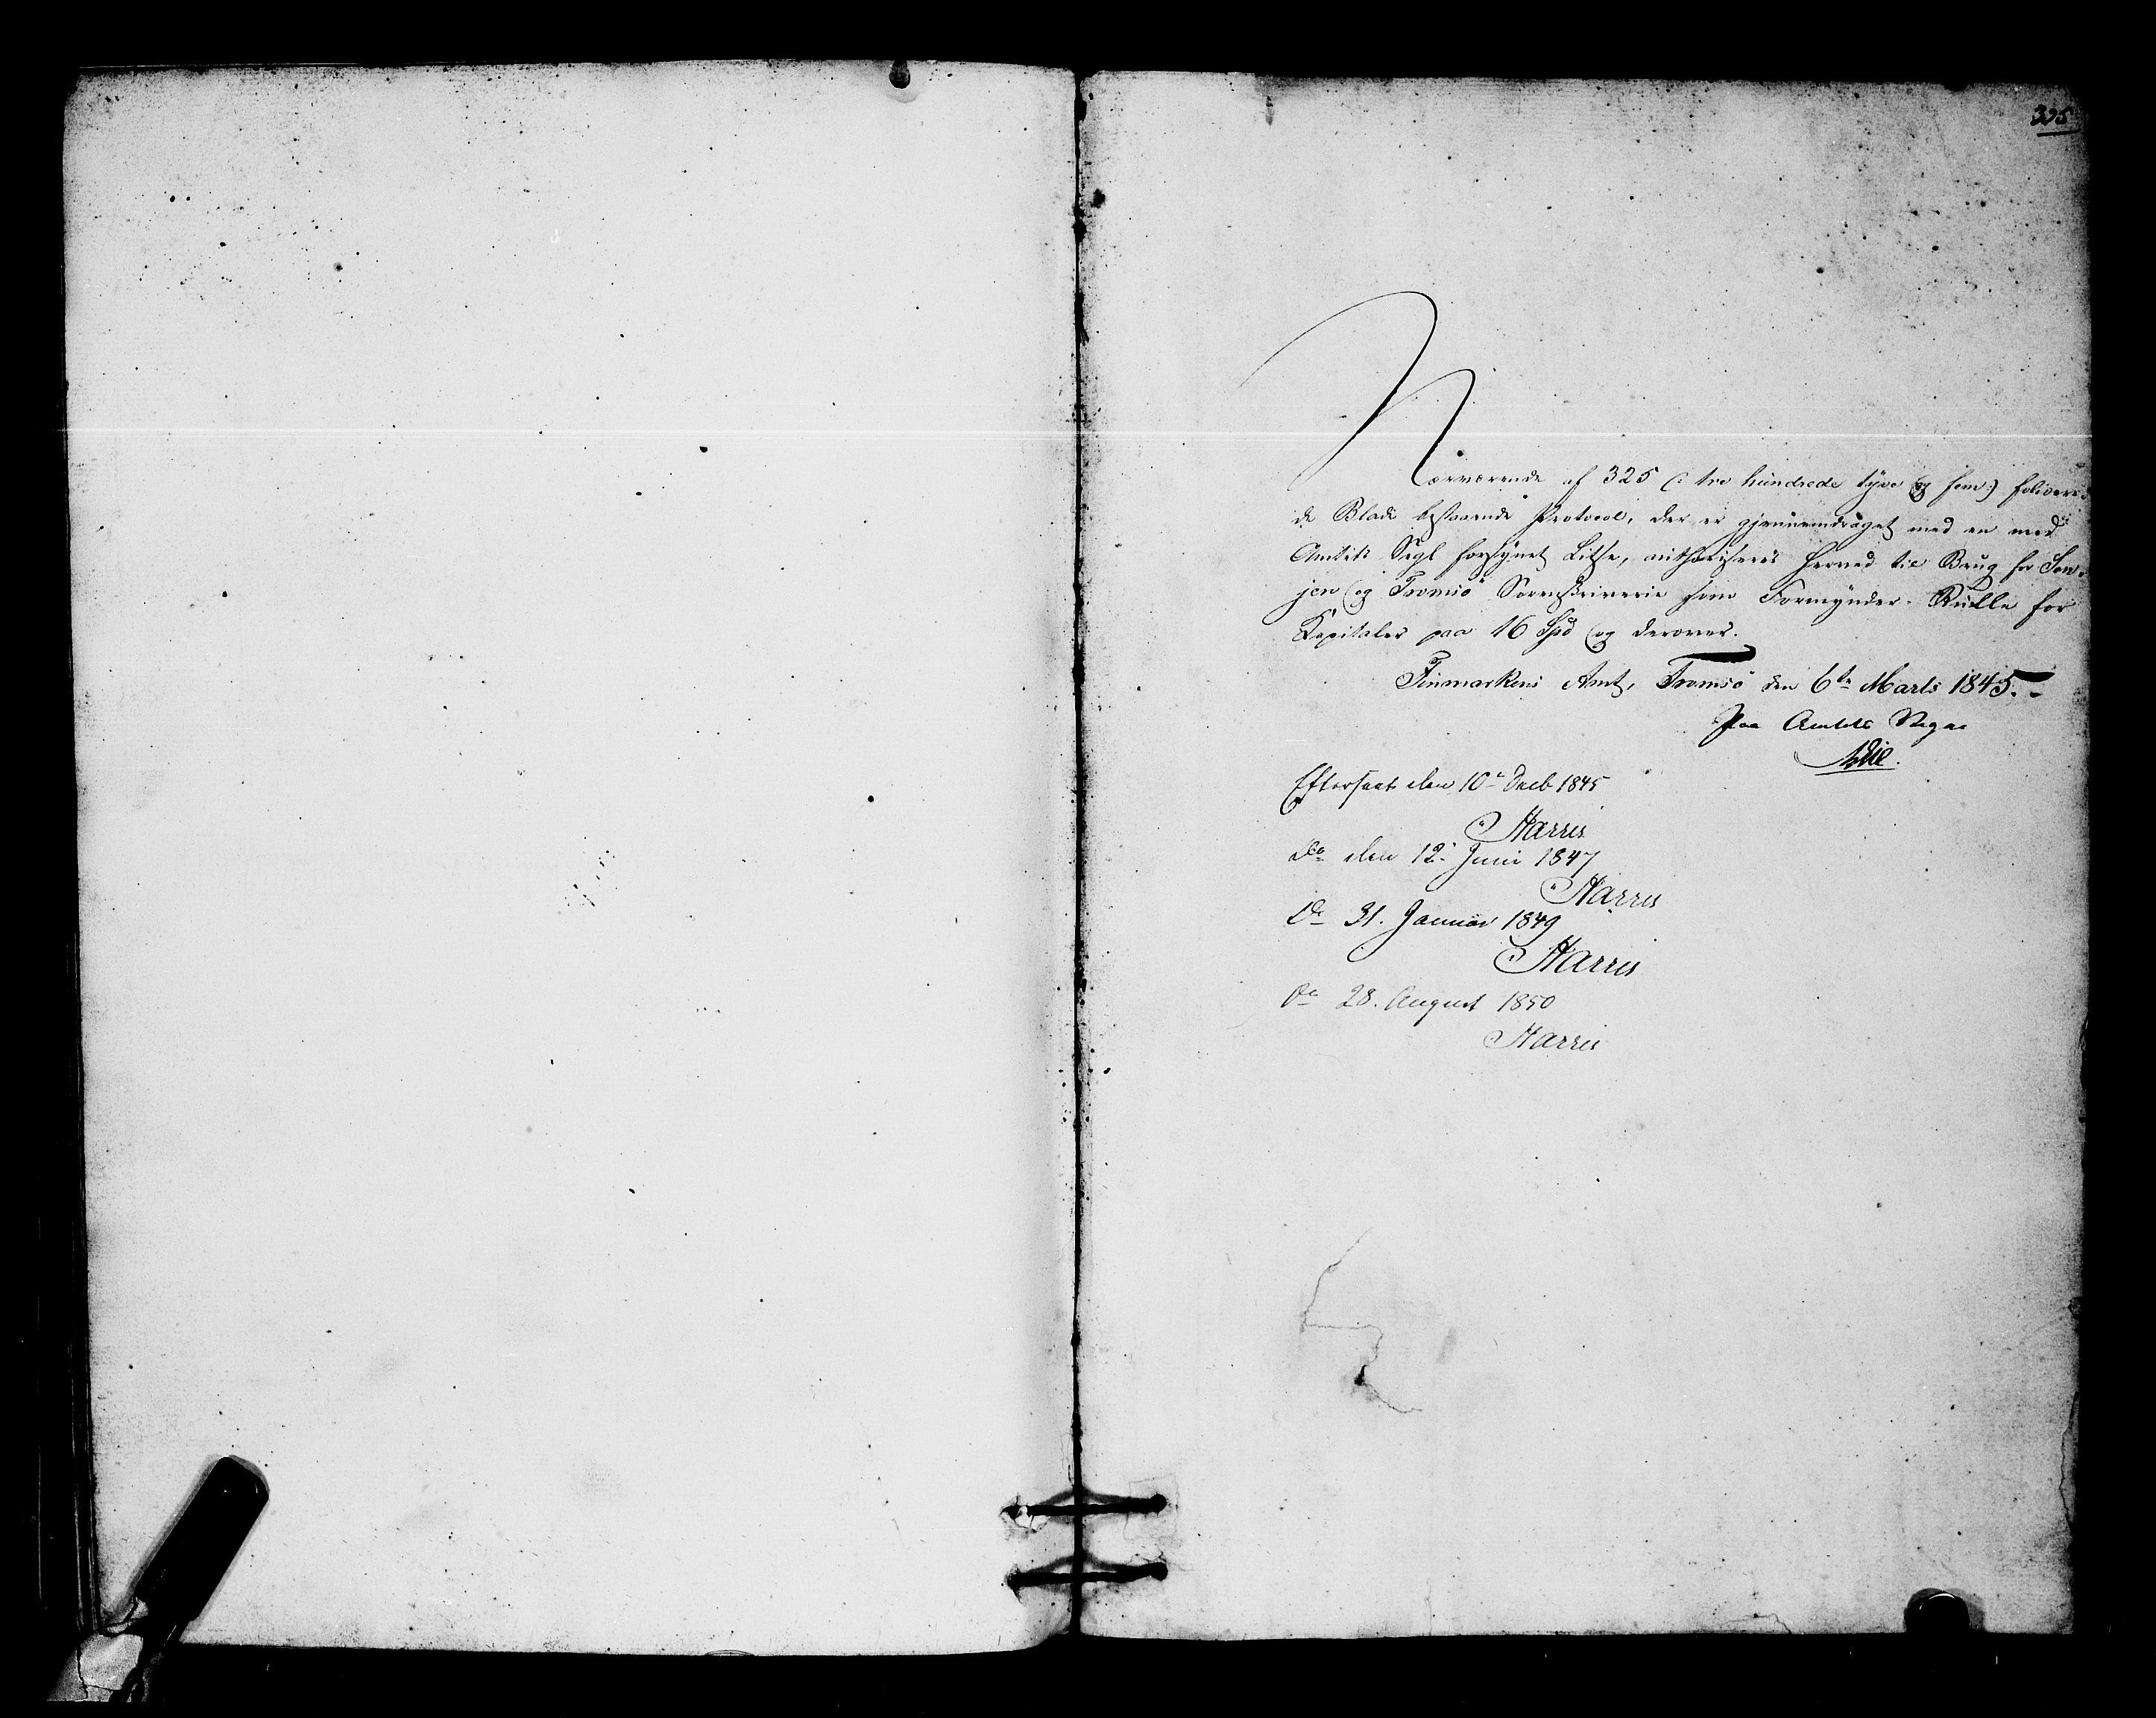 325
Nærværende af 325 (: tre hundrede tyve og fem :) foliere-
de Blade bestaaende Protocol, der er gjennemdraget med en med
Amtets Segl forsynet Litse, authoriseres herved til Brug for Sen-
jen og Tromsö Sorenskriverie som Formynder-Rulle for
Kapitaler paa 16 Spd og derover.
Finmarkens Amt, Tromsö den 6te Marts 1845.-
Paa Amtets Vegne
Eftersaat den 10de Decb 1845
Harris
Do den 12. Juni 1847
Harris
Do 31. Januar 1849
Harris
Do 28. August 1850
Harris